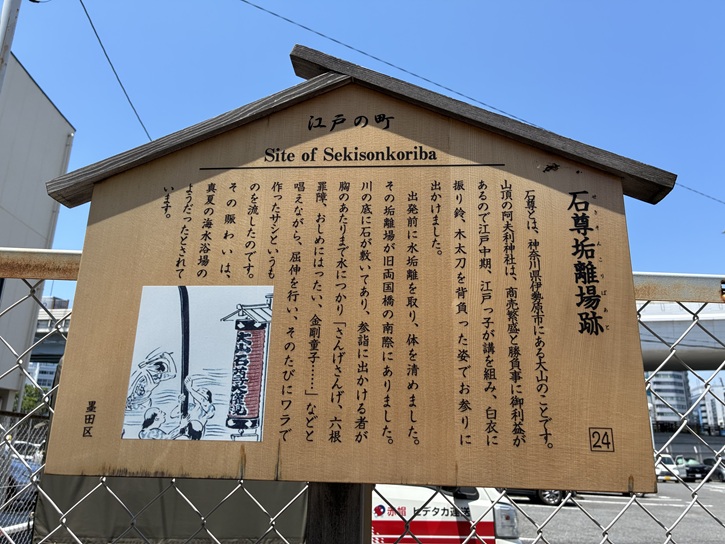 江戸の町
Site of Sekisonkoriba
石尊垢離場跡
せきそんこりばあと
石尊とは、神奈川県伊勢原市にある大山のことです。
山頂の阿夫利神社は、商売繁盛と勝負事に御利益が
あるので江戸中期、江戸っ子が講を組み、白衣に
振り鈴、木太刀を背負った姿でお参りに
出かけました。
出発前に水垢離を取り、体を清めました。
その垢離場が旧両国橋の南際にありました。
川の底に石が敷いてあり、参詣に出かける者が
胸のあたりまで水につかり「さんげさんげ、六根
罪障、おしめにはったい、金剛童子……」などと
唱えながら、屈伸を行い、そのたびにワラで
作ったサシというも
のを流したのです。
その賑わいは、
真夏の海水浴場の
ようだったとされて
います。
墨田区
24
赤帽 ヒデタカ運送